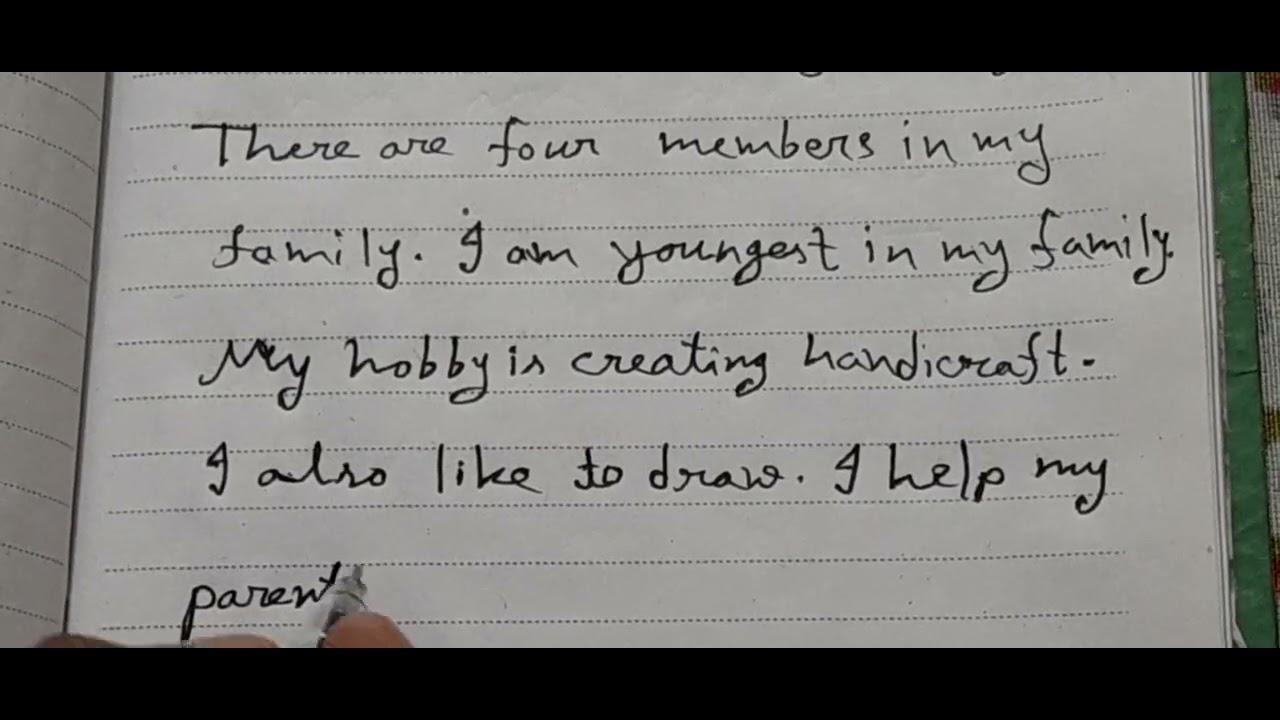 There are four members in my
family. I am youngest in my family.
My hobby is creating handicraft.
I also like to draw. I help my
parent